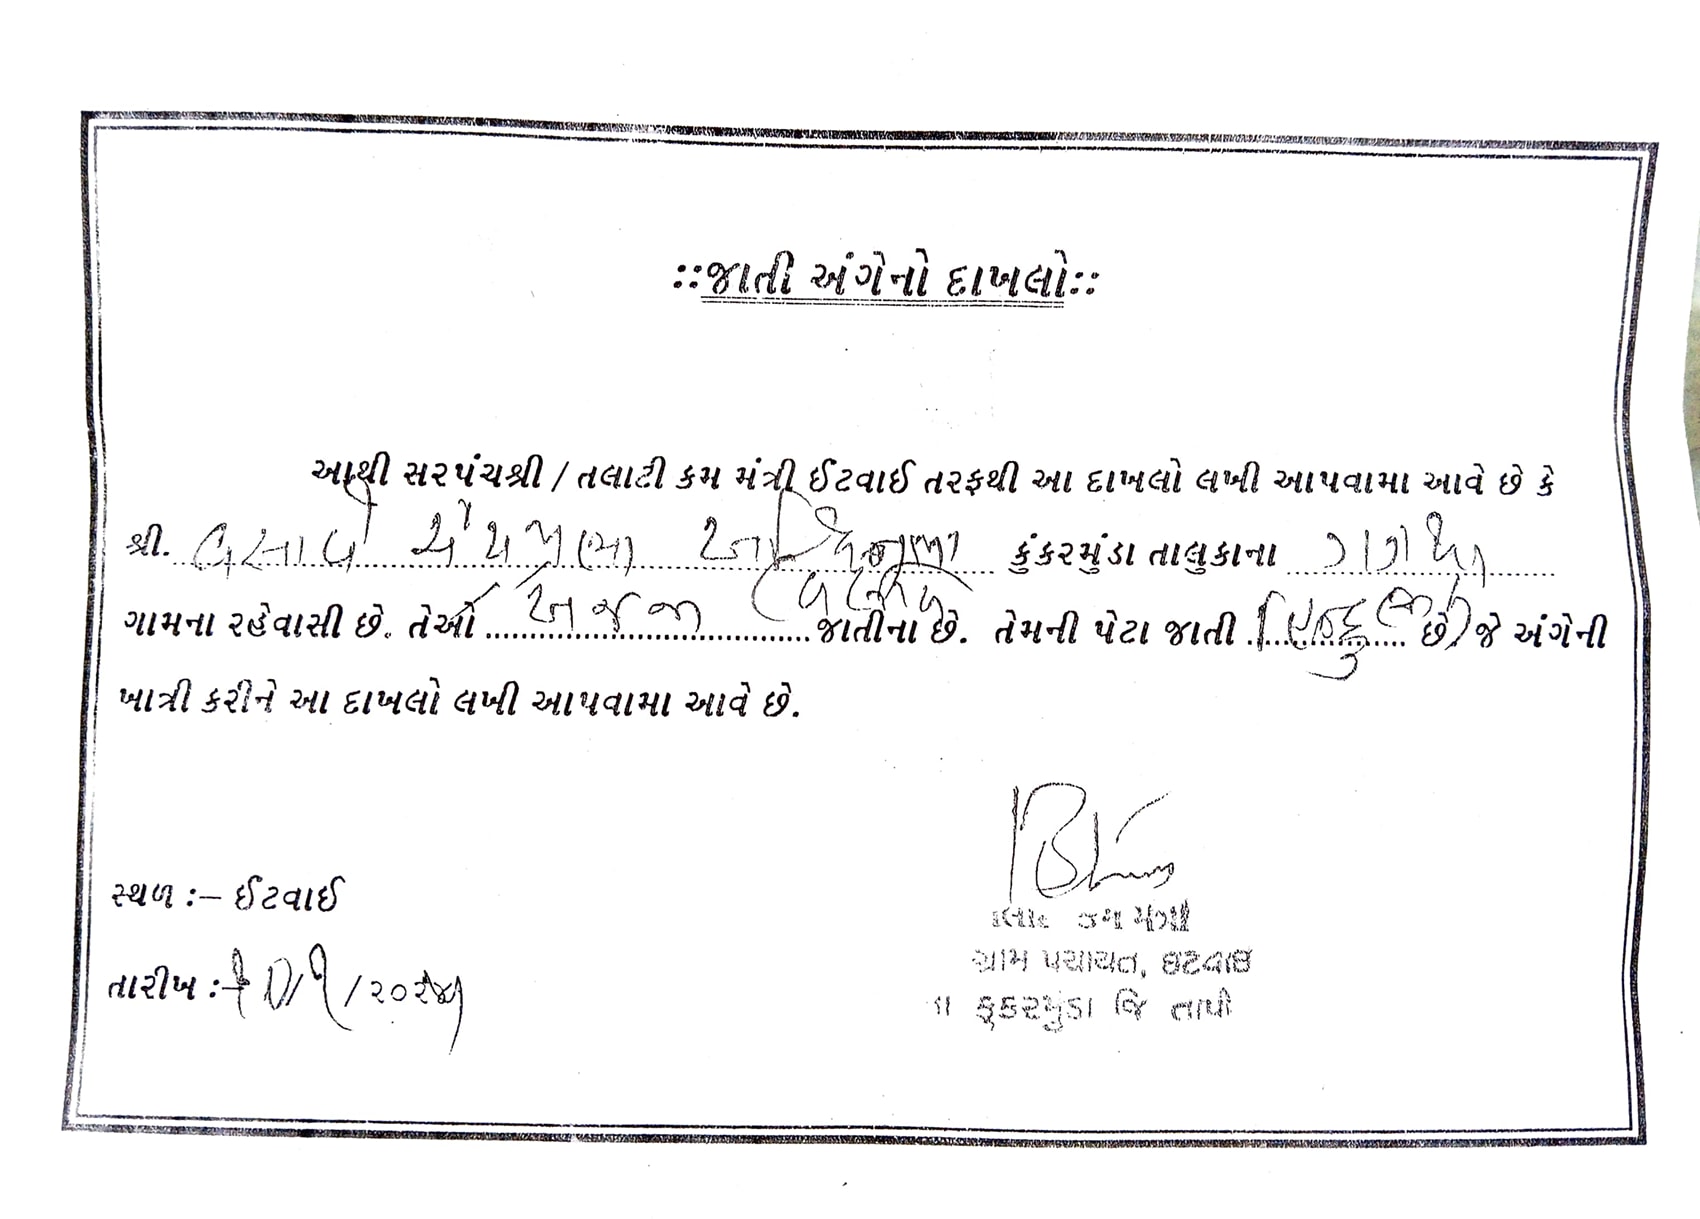 ::જાતી અંગેનો દાખલો::
આથી સરપંચશ્રી / તલાટી કમ મંત્રી ઈટવાઈ તરફથી આ દાખલો લખી આપવામા આવે છે કે
શ્રી. વસાવે કુંકરમુંડા તાલુકાના
ગામના રહેવાસી છે. તેઓ અ જ જા જાતીના છે. તેમની પેટા જાતી હિન્દુ છે, જે અંગેની
ખાત્રી કરીને આ દાખલો લખી આપવામા આવે છે.
સ્થળ :– ઈટવાઈ
કમ મંત્રી
ગ્રામ પંચાયત, ઈટવાઈ
તારીખ :- /૨૦૨૪
કુકરમુંડા જિ તાપી